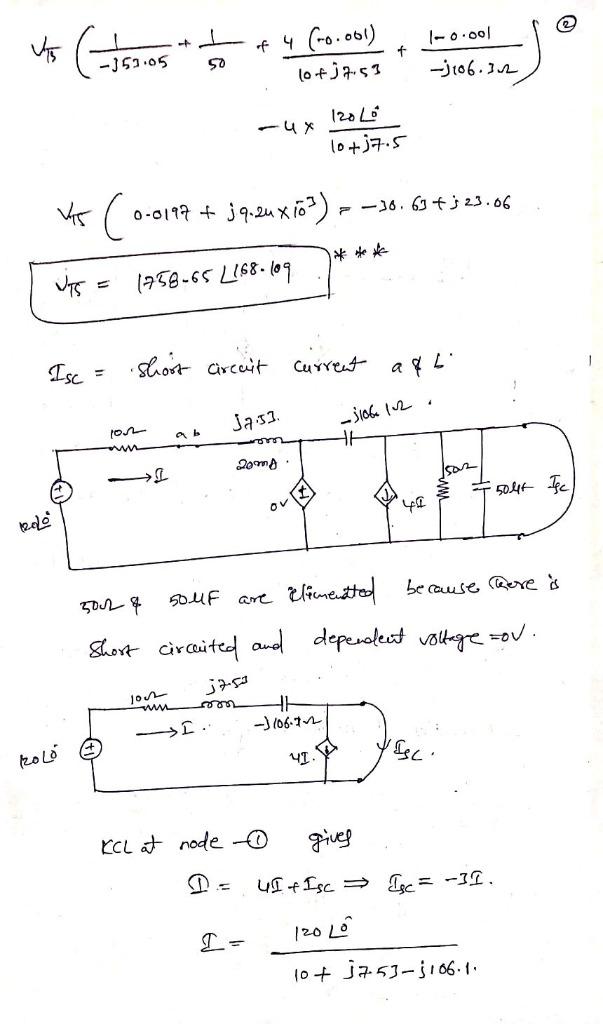 ②
V_TS ( 1/-j53.05 + 1/50 + 4 (-0.001)/10+j7.53 + 1-0.001/-j106.32 )
- 4 x 120∠0°/10+j7.5
V_TS ( 0.0197 + j9.24x10^-3 ) = -30.63 + j23.06
V_TS = 1758.65 ∠168.109 ***
Isc = short circuit current a & b
10Ω a b j7.53. -j106.1Ω
→I 20mA. 0V 4I 50Ω 50μF Isc
120∠0°
50Ω & 50μF are because there is
short circuited and dependent voltage = 0V.
10Ω j7.53
→I. -j106.1Ω
120∠0° 4I. Isc.
KCL at node -① gives
I = 4I + Isc ⇒ Isc = -3I.
I = 120∠0°/10 + j7.53 - j106.1.